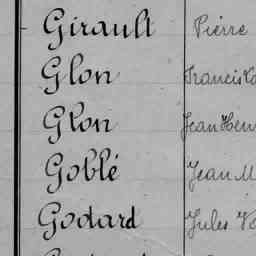 Girault Pierre
Glon
Glon Jean
Goblé Jean M
Godard Jules